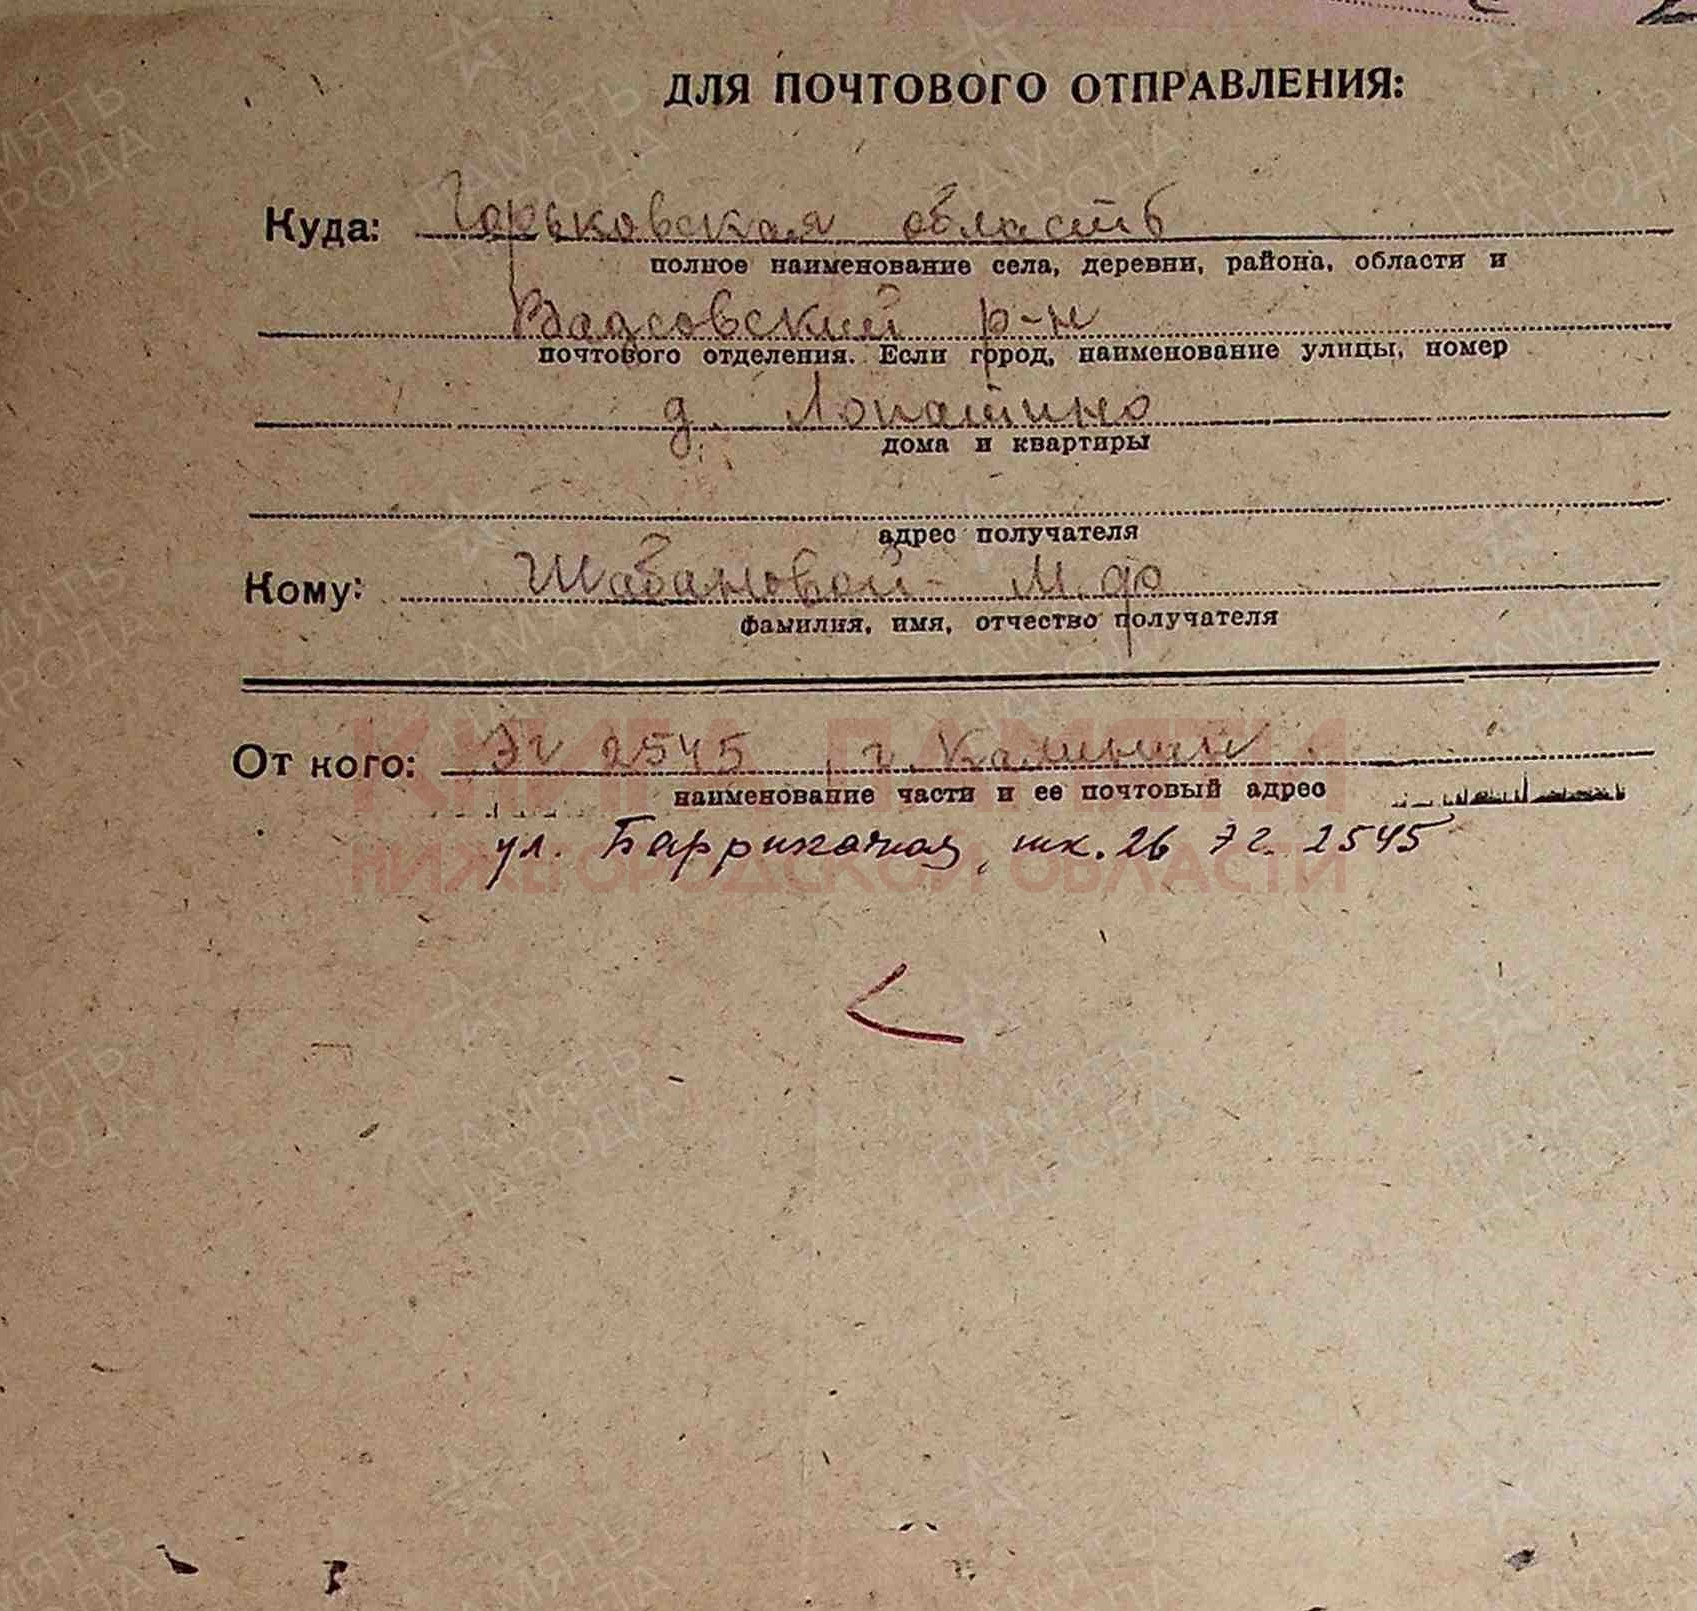 ДЛЯ ПОЧТОВОГО ОТПРАВЛЕНИЯ:
Куда: Горьковская область
полное наименование села, деревни, района, области и
Вадсовский р-н
почтового отделения. Если город, наименование улицы, номер
д. Лопатино
дома и квартиры
адрес получателя
Кому: Шабановой М. Ф
фамилия, имя, отчество получателя
От кого: ЭГ 2545 г. Калинин
наименование части и ее почтовый адрес
ул. Баррикадная, шк. 26 ЭГ. 2545
КНИГА ПАМЯТИ
НИЖЕГОРОДСКОЙ ОБЛАСТИ
ПАМЯТЬ
НАРОДА